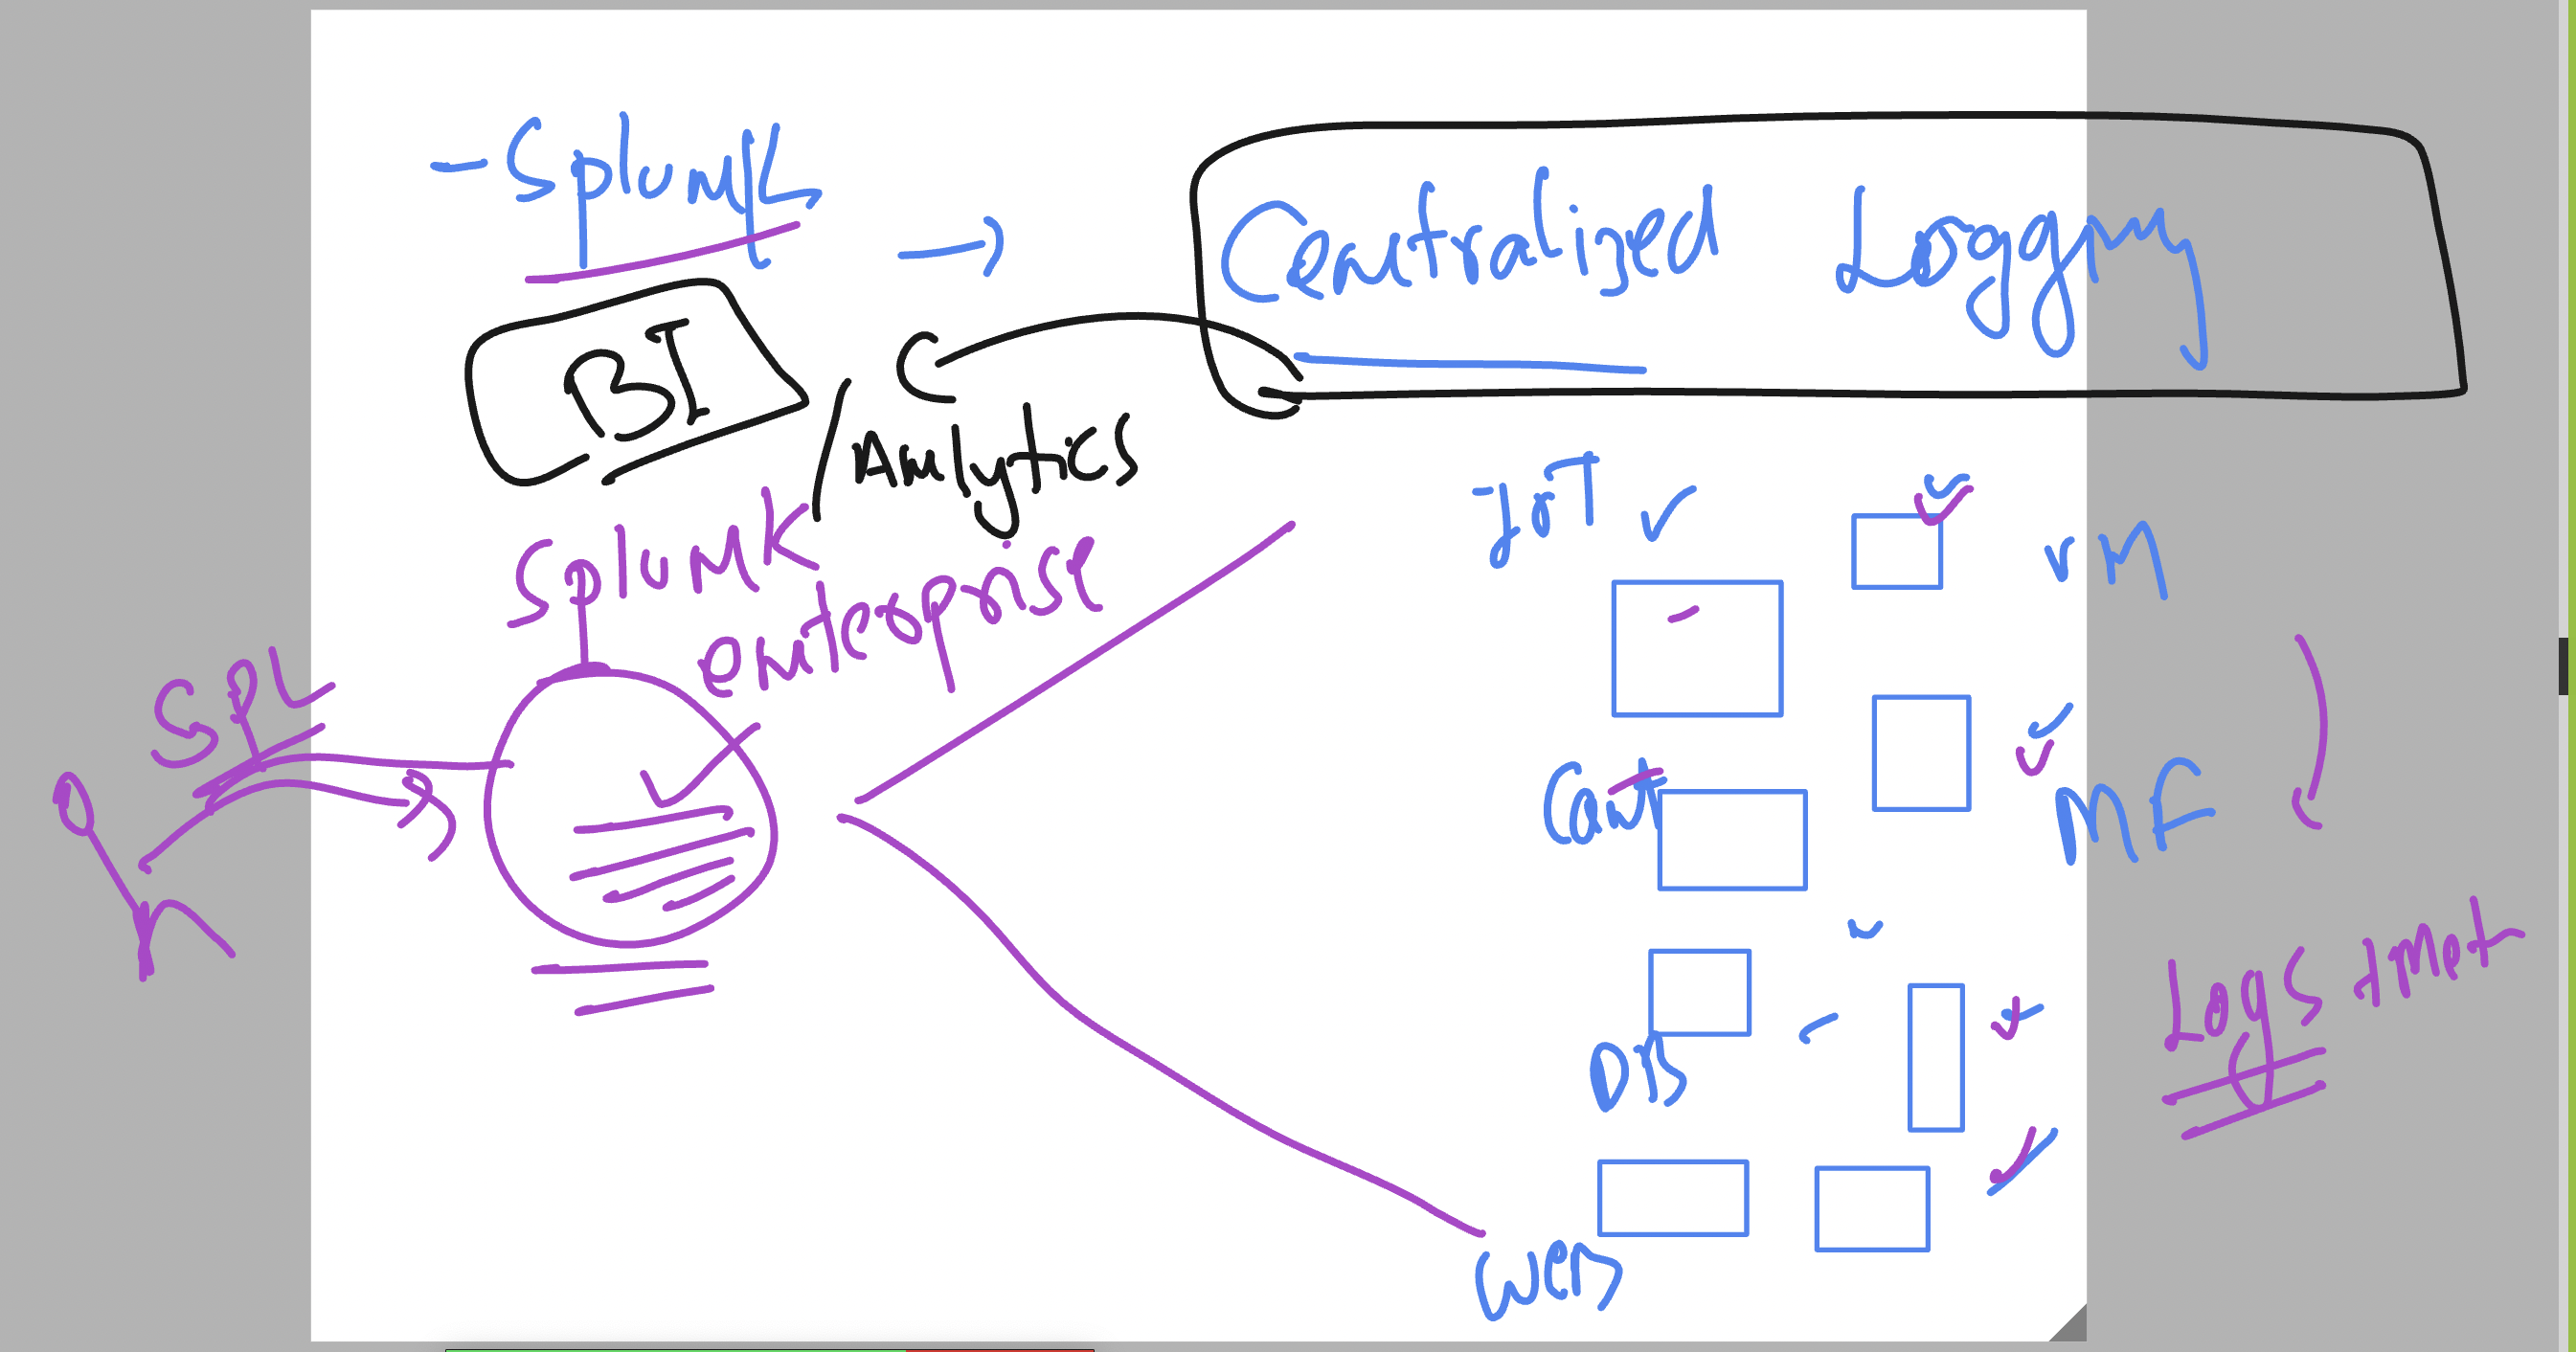 - Splunk
→ Centralized Logging
BI / Analytics
Splunk
enterprise
SPL
IoT
VM
Cont
MF
DB
Logs + Met
WEB